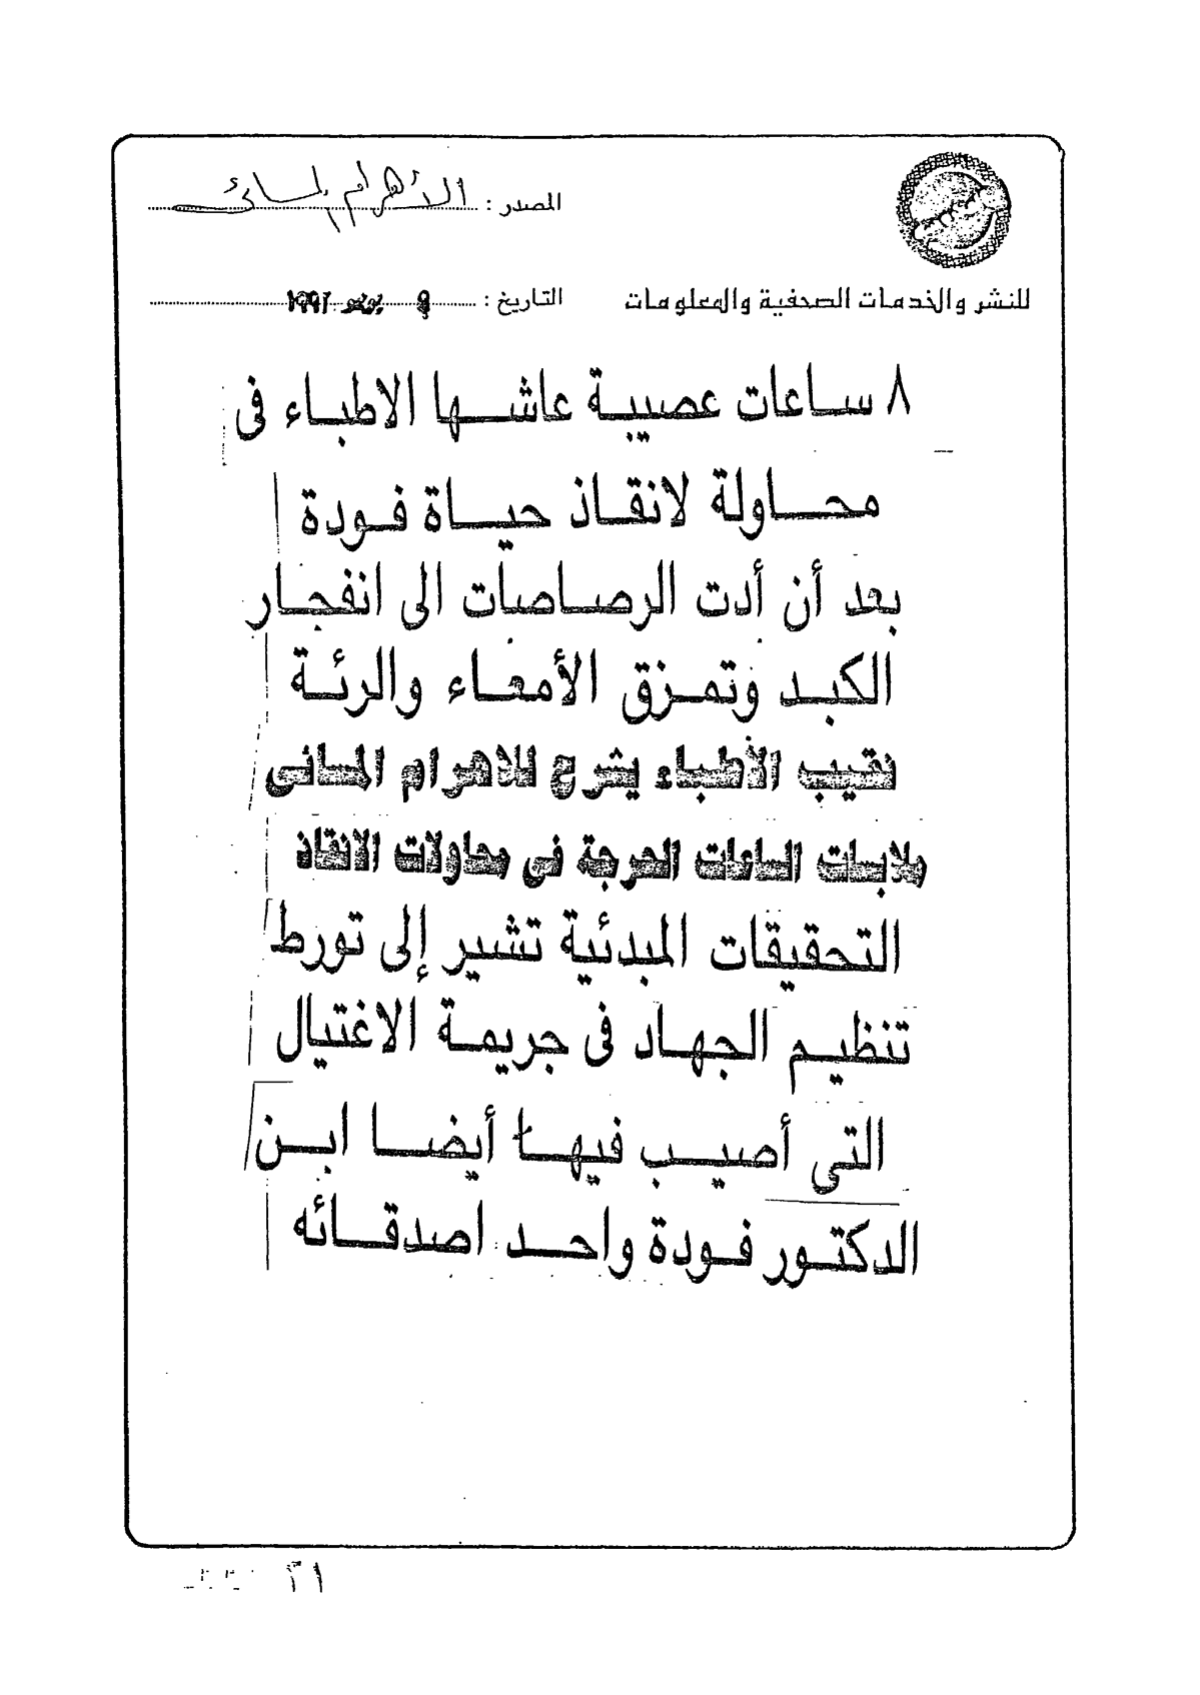 المصدر : الأهرام المسائى
التاريخ : ٩ يونيو ١٩٩٢
للنشر والخدمات الصحفية والمعلومات
٨ ساعات عصيبة عاشها الاطباء فى
محاولة لانقاذ حياة فودة
بعد أن أدت الرصاصات الى انفجار
الكبد وتمزق الأمعاء والرئة
نقيب الأطباء يشرح للاهرام المسائى
ملابسات الساعات الحرجة فى محاولات الانقاذ
التحقيقات المبدئية تشير إلى تورط
تنظيم الجهاد فى جريمة الاغتيال
التى أصيب فيها أيضا ابن
الدكتور فودة واحد اصدقائه